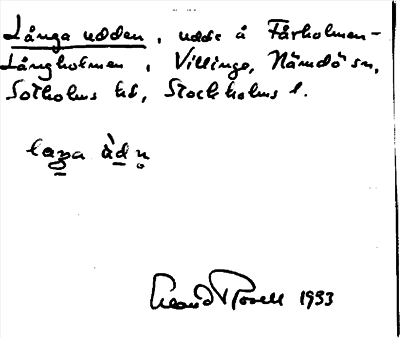 Långa udden, udde å Fårholmen-
Långholmen, Villinge, Nämdö sn,
Sotholms hd, Stockholms l.
laŋa ùdn̥
1933